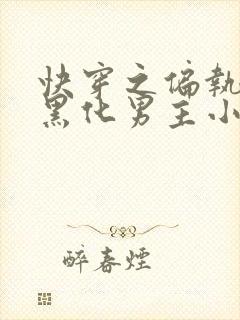 快穿之偏執
黑化男主小
醉春煙